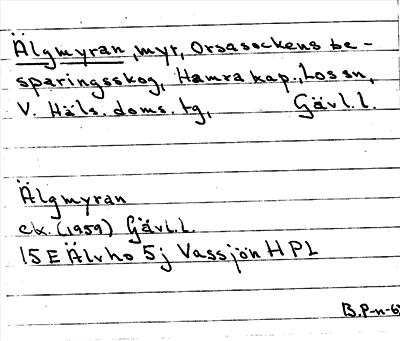 Älgmyran, myr, Orsasockens be-
sparingsskog, Hamra kap., Los sn,
V. Häls. doms. tg, Gävl.l.
Älgmyran
ek. (1959) Gävl.l.
15E Älvho 5j Vassjön HPL
B.P-n-6